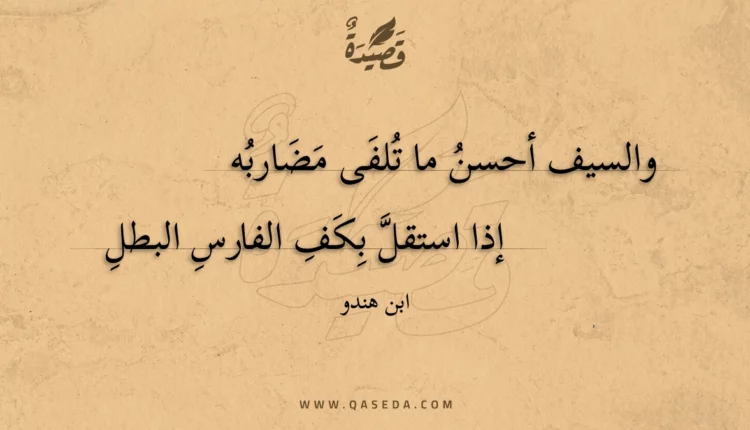 قَصِيدَةٌ
والسيف أحسنُ ما تُلفَى مَضَاربُه
إذا استقلَّ بِكَفِ الفارسِ البطلِ
ابن هندو
WWW.QASEDA.COM